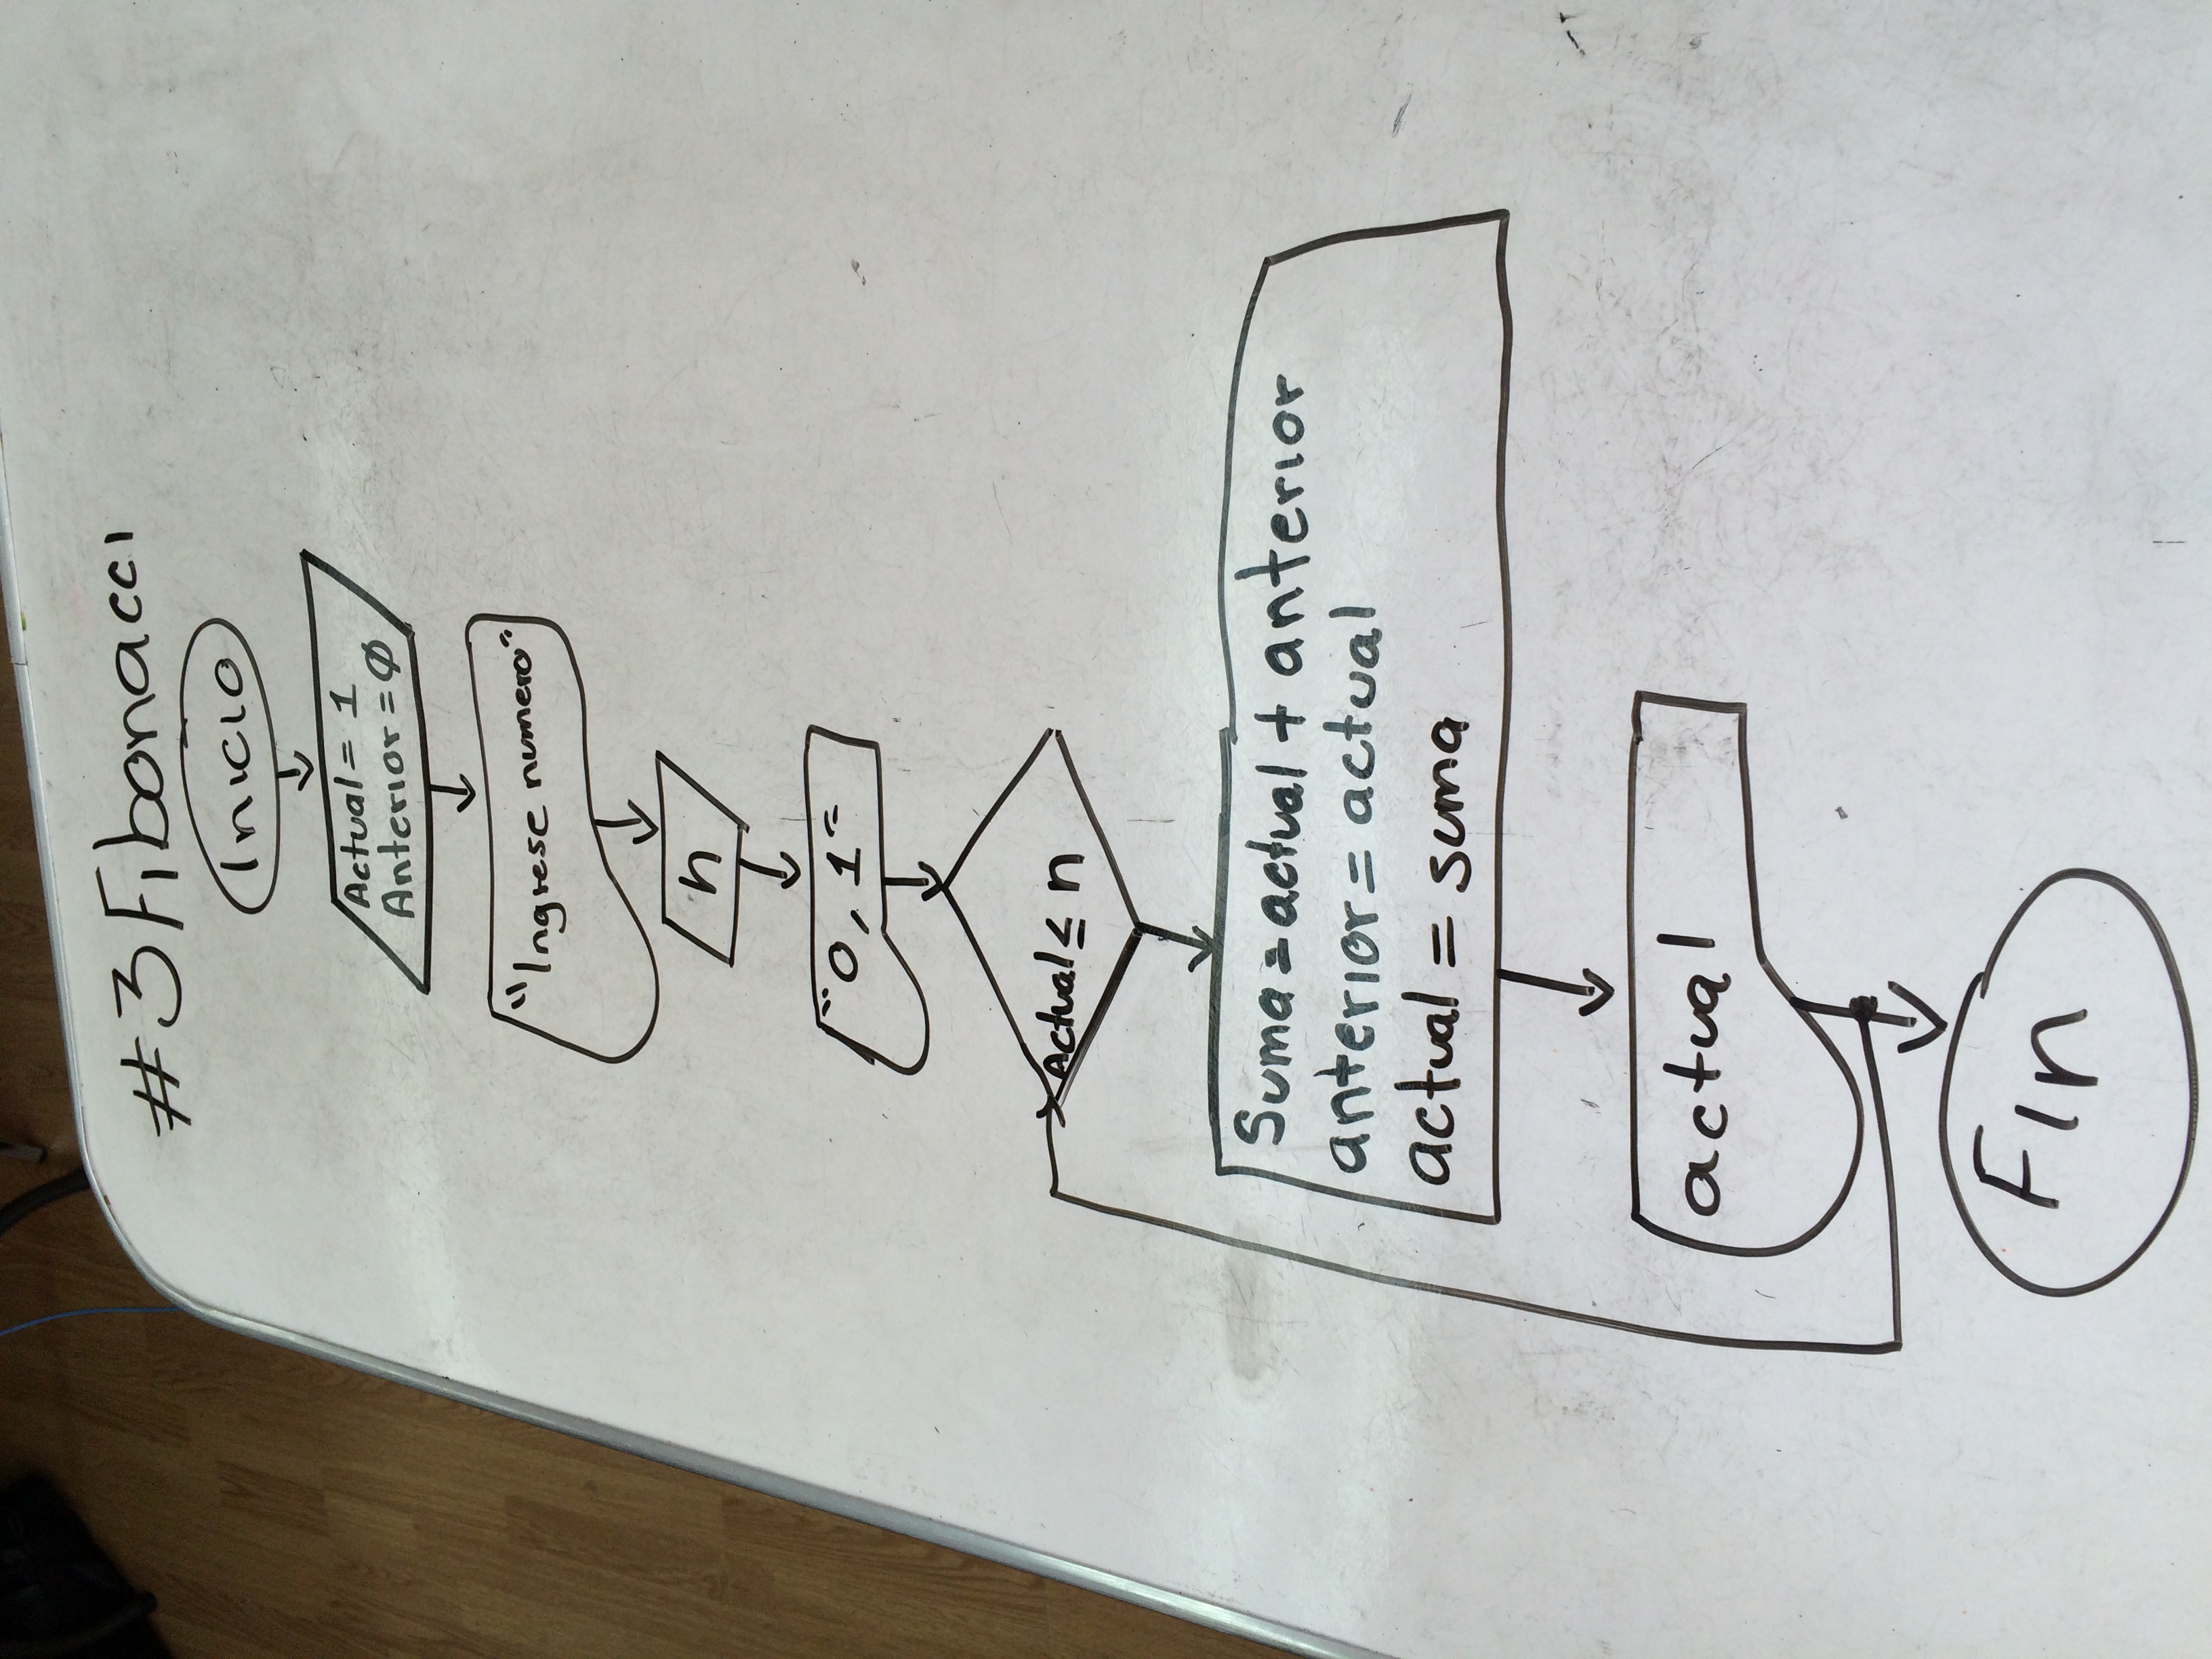 #3 Fibonacci
Inicio
Actual = 1
Anterior = Ø
"Ingrese numero"
n
"0, 1"
Actual ≤ n
Suma = actual + anterior
anterior = actual
actual = suma
actual
Fin